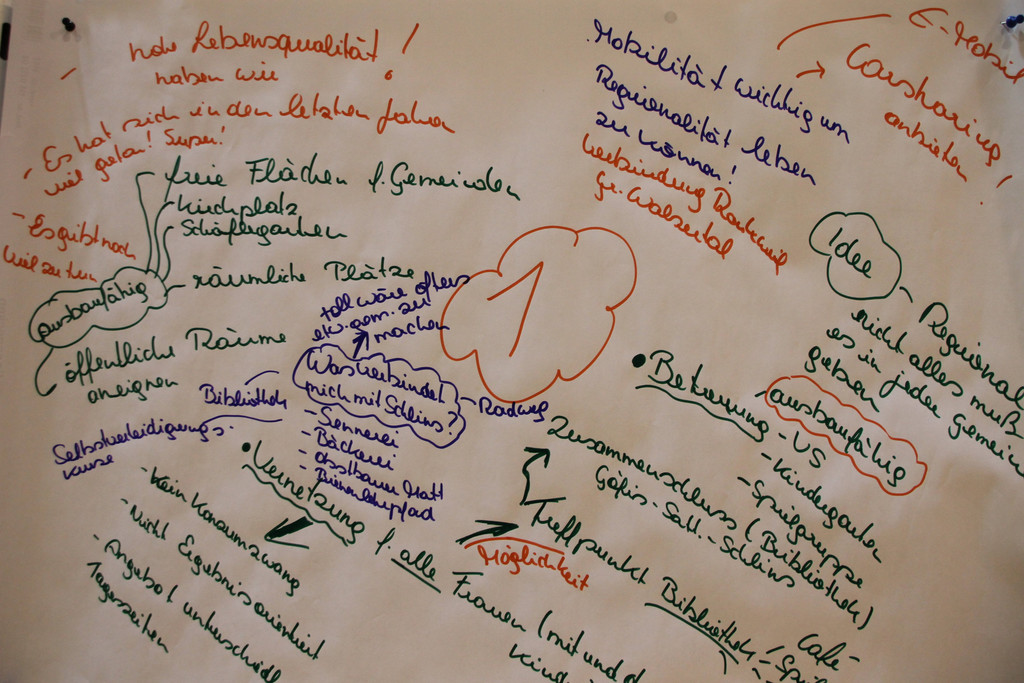 hohe Lebensqualität!
haben wir
- Es hat sich in den letzten Jahren
viel getan! Super!
- Es gibt noch
viel zu tun
freie Flächen f. Gemeinden
Kirchplatz
Schäflegarten
räumliche Plätze
ausbaufähig
öffentliche Räume
aneignen
toll wäre öfters
etw. gem. zu
machen
Was verbindet
mich mit Schlins?
- Radweg
Bibliothek
Selbstverteidigungs-
kurse
- Sennerei
- Bäckerei
- Obstbauer Matt
- Bienenlehrpfad
1
E-Mobil
Carsharing
anbieten!
Mobilität wichtig um
Regionalität leben
zu können!
Verbindung Rankweil
Gr. Walsertal
Idee
- Regional
nicht alles muß
es in jeder Gemein
geben
• Betreuung
ausbaufähig
- VS
- Kindergarten
- Spielgruppe
Zusammenschluss (Bibliothek)
Göfis - Satt. - Schlins
Treffpunkt Bibliothek
Möglichkeit
Café -
• Vernetzung f. alle Frauen (mit und
- kein Konsumzwang
- Nicht Ergebnisorientiert
- Angebot unterschiedl
Tageszeiten